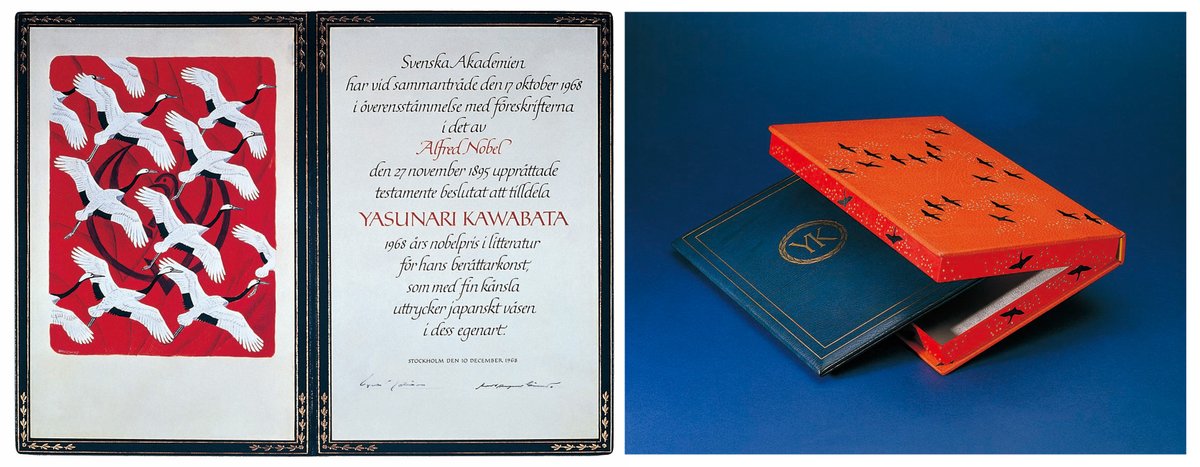 Svenska Akademien
har vid sammanträde den 17 oktober 1968
i överensstämmelse med föreskrifterna
i det av
Alfred Nobel
den 27 november 1895 upprättade
testamente beslutat att tilldela
YASUNARI KAWABATA
1968 års nobelpris i litteratur
för hans berättarkonst,
som med fin känsla
uttrycker japanskt väsen
i dess egenart.
STOCKHOLM DEN 10 DECEMBER 1968
YK